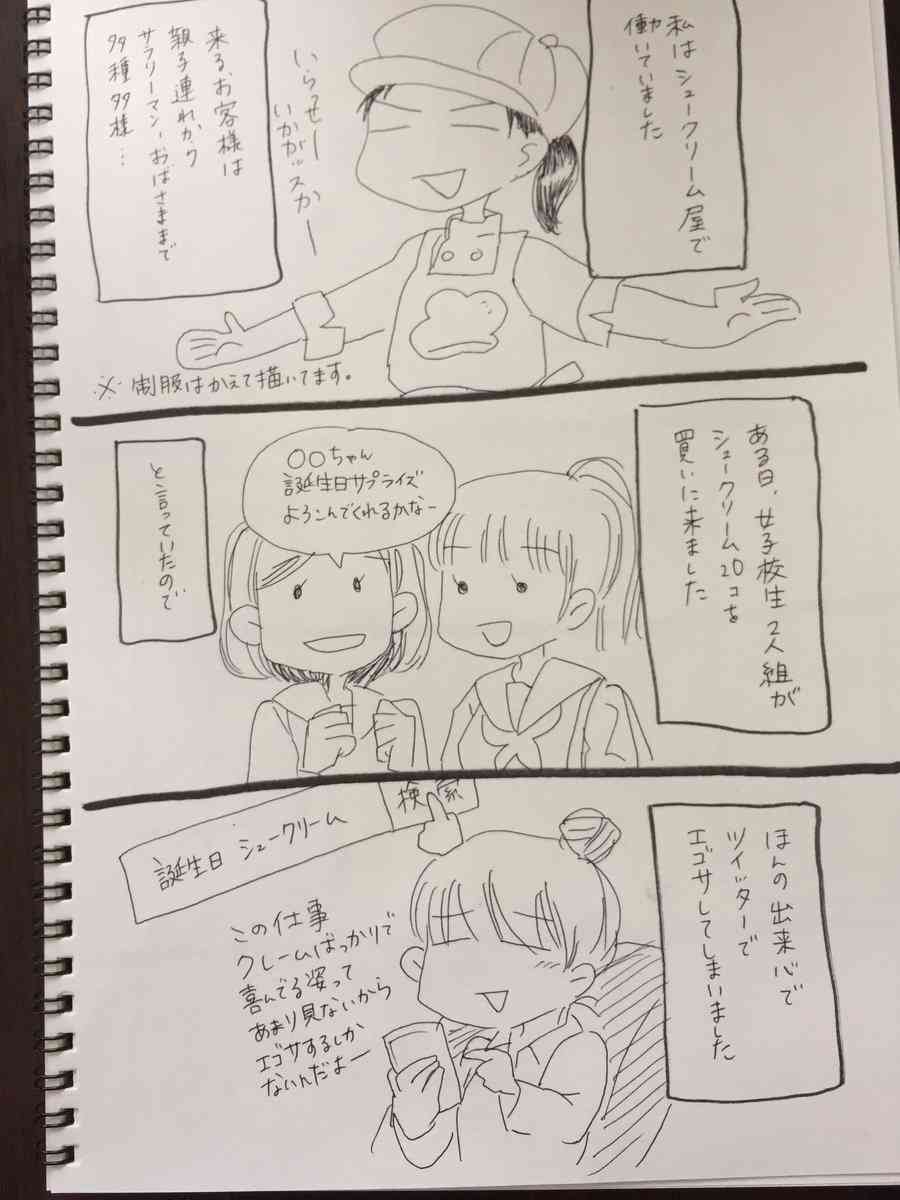 私はシュークリーム屋で
働いていました
いらっせー
いかがッスかー
来るお客様は
親子連れから
サラリーマン、おばさままで
多種多様…
※制服はかえて描いてます。
ある日、女子校生2人組が
シュークリーム20コを
買いに来ました
○○ちゃん
誕生日サプライズ
よろこんでくれるかなー
と言っていたので
ほんの出来心で
ツイッターで
エゴサしてしまいました
検索
誕生日 シュークリーム
この仕事
クレームばっかりで
喜んでる姿って
あまり見ないから
エゴサするしか
ないんだよー